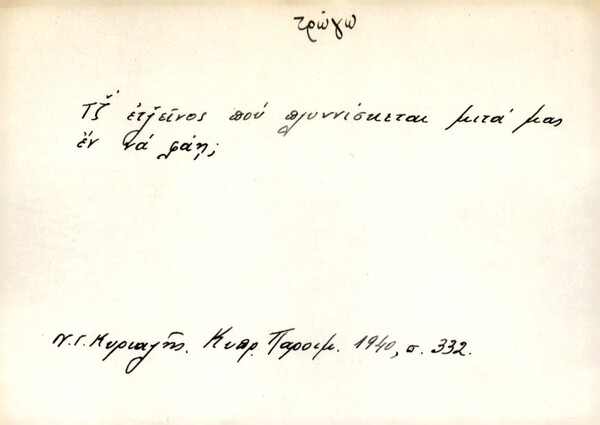 τρώγω
Τζ̌' ἐτζ̌εῖνος πού πλυννίσκεται μιτά μας
ἔν νά φάῃ;
Ν.Γ. Κυριαζῆς. Κυπρ. Παροιμ. 1940, σ. 332.